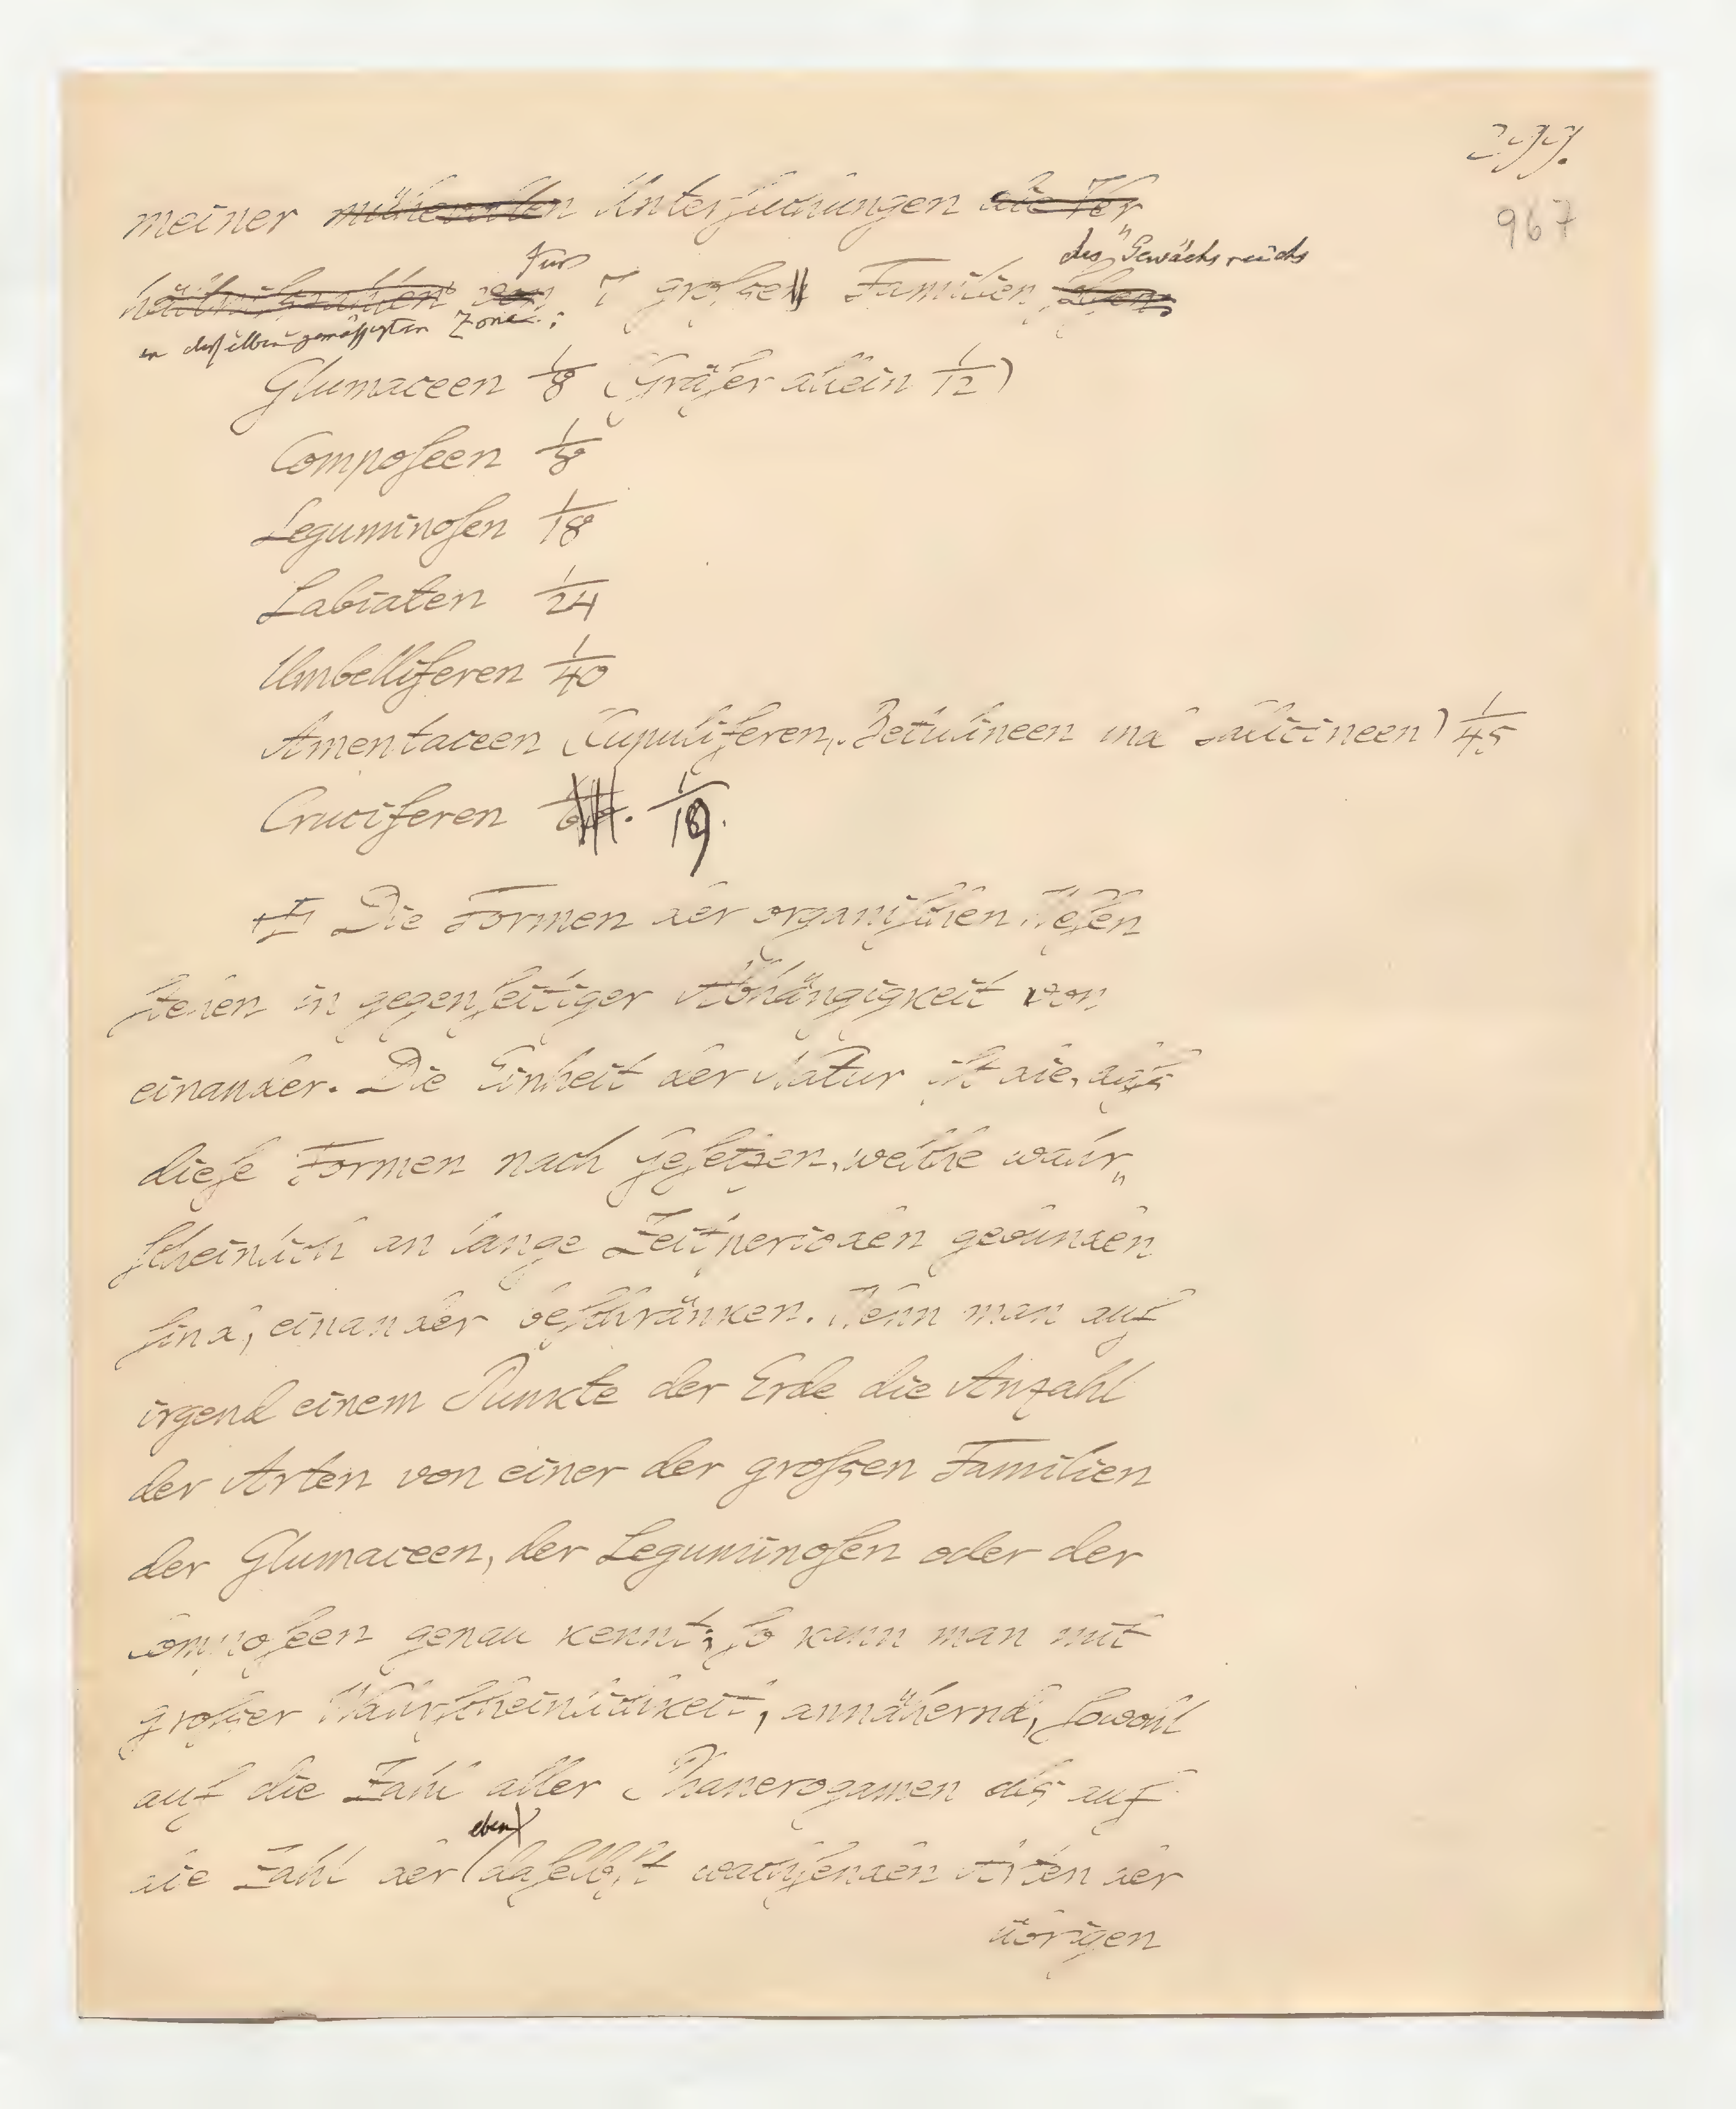 meiner mühevollen Untersuchungen die Ver
hältnißzahlen von für 7 großen Familien des Gewächsreichs
in derselben gemäßigten Zone:
Glumaceen 1/8 (Gräser allein 1/12)
Composeen 1/8
Leguminosen 1/18
Labiaten 1/24
Umbelliferen 1/40
Amentaceen (Cupuliferen, Betulineen und Salicineen) 1/45
Cruciferen 1/19.
Die Formen der organischen Wesen
stehen in gegenseitiger Abhängigkeit von
einander. Die Einheit der Natur ist die, daß
diese Formen nach Gesetzen, welche wahr„
scheinlich an lange Zeitperioden gebunden
sind, einander beschränken. Wenn man auf
irgend einem Punkte der Erde die Anzahl
der Arten von einer der großen Familien
der Glumaceen, der Leguminosen oder der
Composeen genau kennt; so kann man mit
großer Wahrscheinlichkeit, annähernd, sowohl
auf die Zahl aller Phanerogamen als auf
die Zahl der eben daselbst wachsenden Arten der
übrigen
967